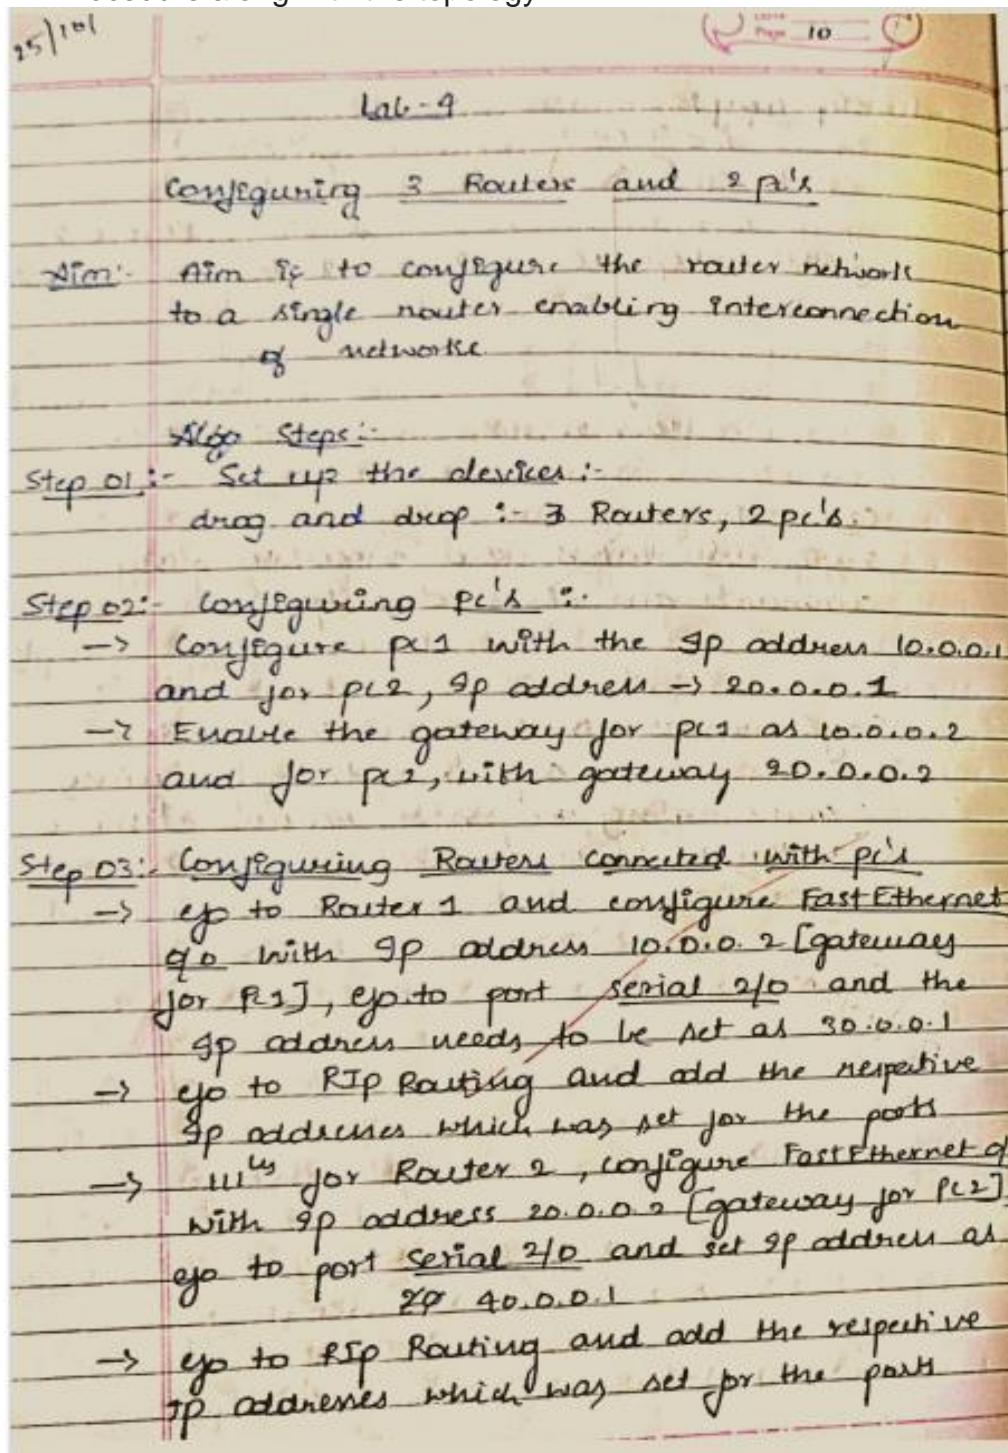 along with the topology
25/10/
Page 10
Lab-4
Configuring 3 Routers and 2 pc's
Aim:- Aim is to configure the router network
to a single router enabling interconnection
of networks
Algo Steps:-
Step 01:- Set up the devices:-
drag and drop:- 3 Routers, 2 pc's.
Step 02:- Configuring pc's:-
-> Configure pc1 with the Ip address 10.0.0.1
and for pc2, Ip address -> 20.0.0.1
-> Enable the gateway for pc1 as 10.0.0.2
and for pc2, with gateway 20.0.0.2
Step 03:- Configuring Routers connected with pc's
-> go to Router 1 and configure FastEthernet
0/0 with Ip address 10.0.0.2 [gateway
for Pc1], go to port serial 2/0 and the
Ip address needs to be set as 30.0.0.1
-> go to RIp Routing and add the respective
Ip addresses which was set for the ports
-> |||ly for Router 2, configure FastEthernet 0
with Ip address 20.0.0.2 [gateway for Pc2]
go to port serial 2/0 and set Ip address as
40.0.0.1
-> go to RIp Routing and add the respective
Ip addresses which was set for the ports